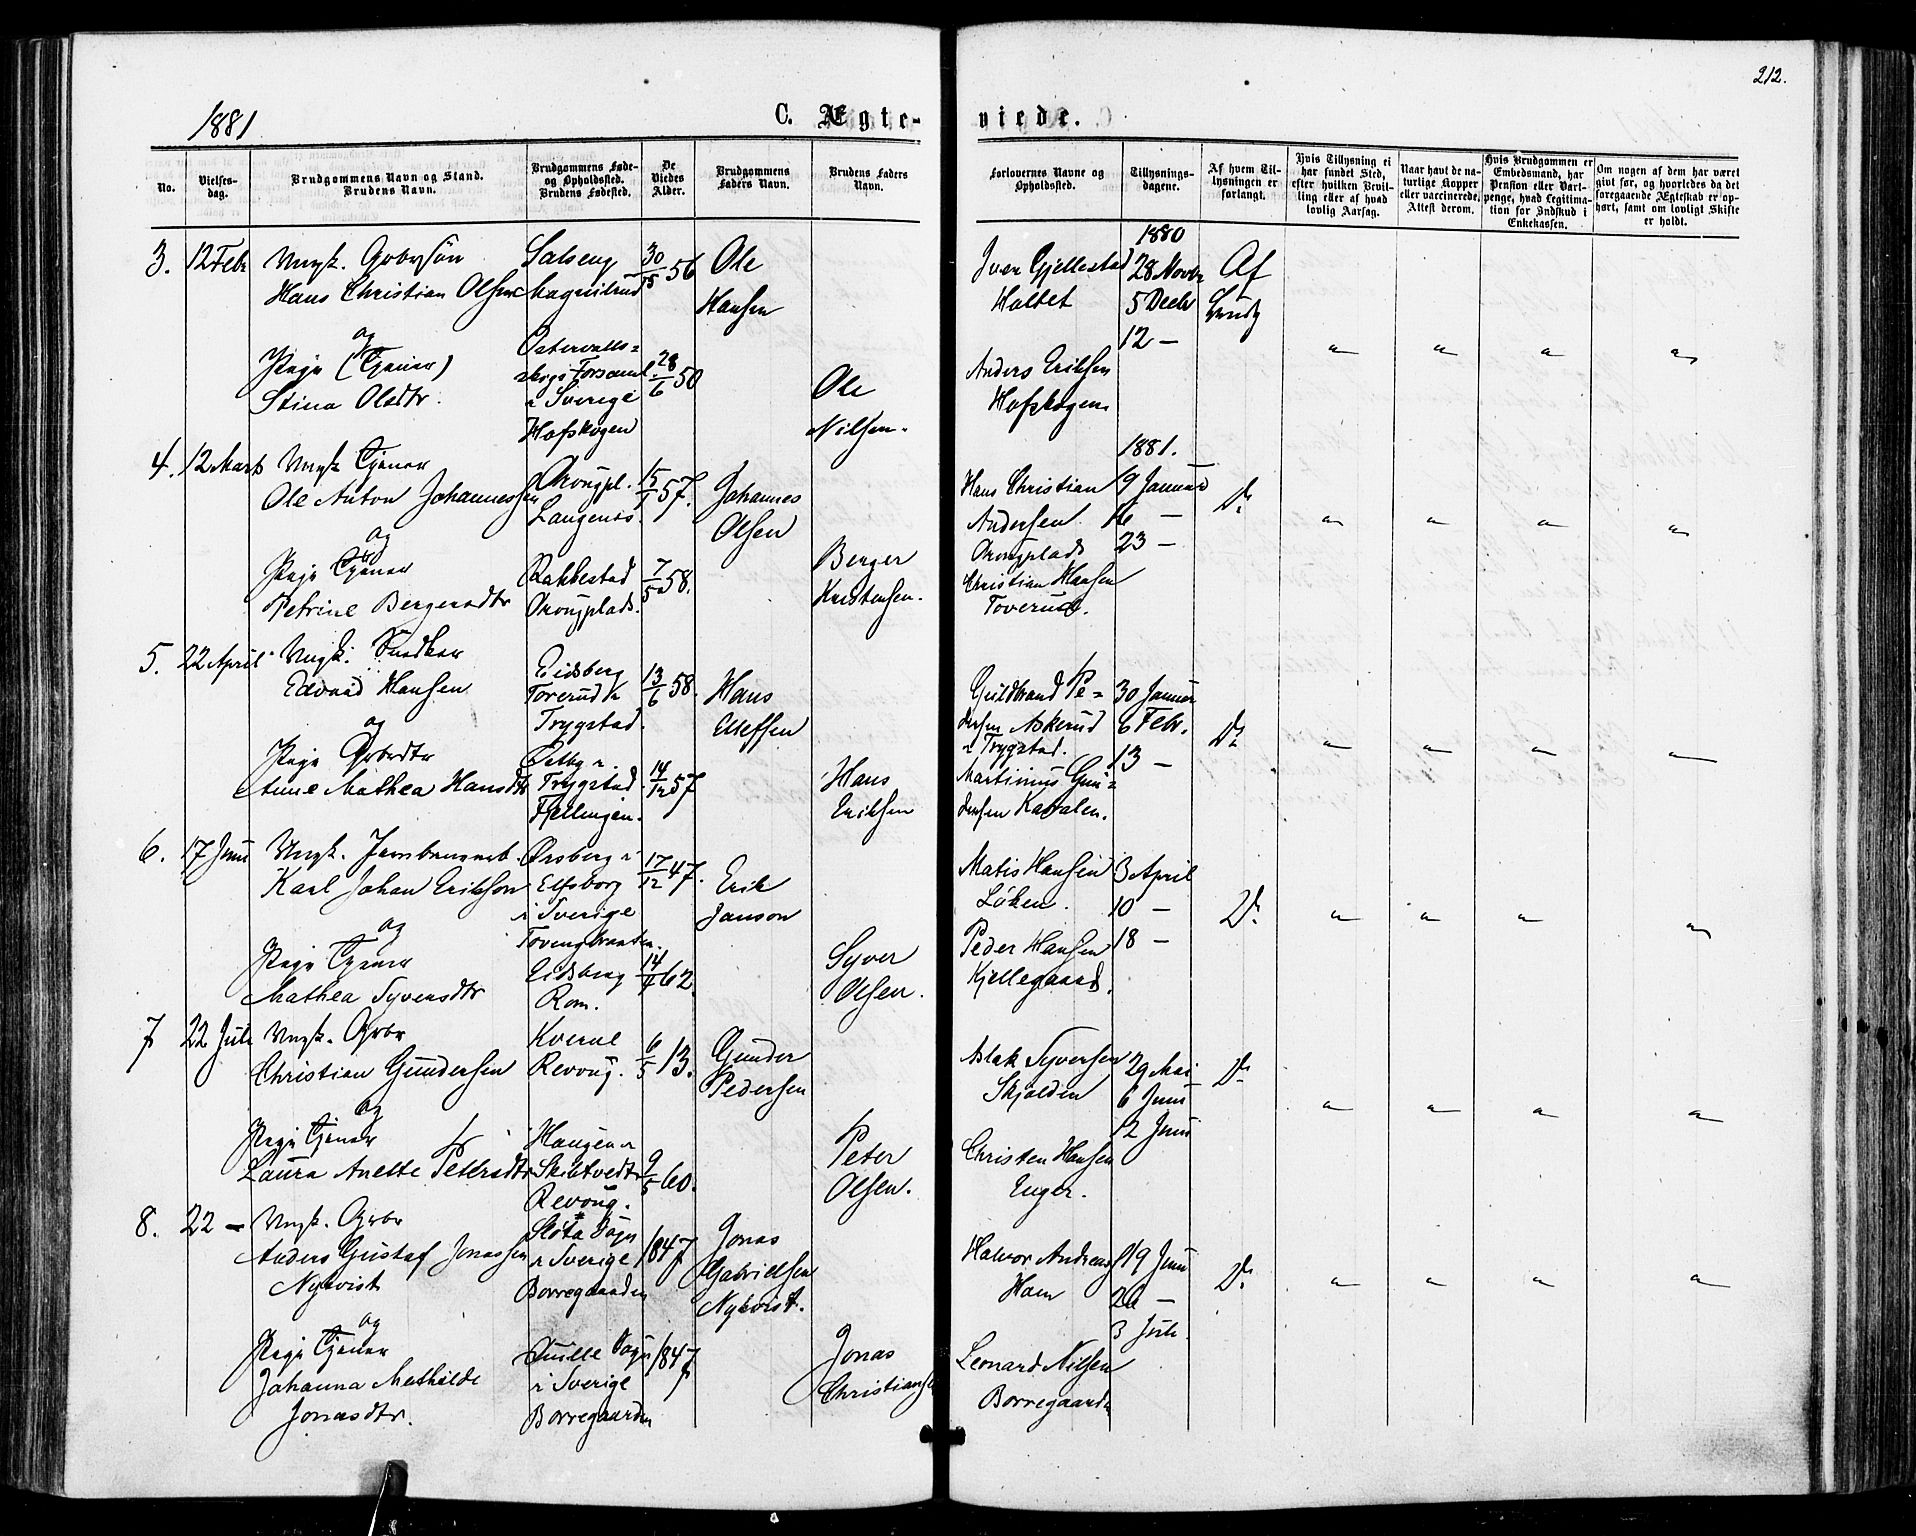 212.
1881
C. Ægte-
viede.
No.
Vielses-
dag.
Brudgommens Navn og Stand.
Brudens Navn.
Brudgommens Føde-
og Opholdssted.
Brudens Fødested.
De
Viedes
Alder.
Brudgommens
Faders Navn.
Brudens Faders
Navn.
Forlovernes Navne og
Opholdssted.
Tillysnings-
dagene.
Af hvem Til-
lysningen er
forlangt.
Hvis Tillysning ei
har fundet Sted,
efter hvilken Bevil-
ling eller af hvad
lovlig Aarsag.
Naar havt de na-
turlige Kopper
eller vaccinerede,
Attest derom.
Hvis Brudgommen er
Embedsmand, har
Pension eller Vart-
penge, hvad Legitima-
tion for Indskud i
Enkekassen.
Om nogen af dem har været
givt før, og hvorledes da det
foregaaende Ægteskab er op-
hørt, samt om lovligt Skifte
er holdt.
3. 12 Febr
Ungk. Grbrsøn
Hans Christian Olsen
og
Pige (Tjener)
Stina Olsdtr.
Salseng
Østervalls-
i Sverige
Hofskogen
56
28/6 50
Ole
Hansen
Ole
Nilsen.
Iver Gjellestad
Holtet
Anders Eriksen
Hofskogen
1880
28 Novbr
5 Decbr
12 —
Af
4. 12 Marts
Ungk Tjener
Ole Anton Johannessen
og
Pige Tjener
Petrine Bergersdtr
Langenes.
Rakkestad
57.
7/5 58.
Johannes
Olsen
Berger
Kristensen.
Hans Christian
Andersen
Christian Hansen
Toverud.
1881.
9 Januar
16 —
23 —
Do
5. 22 April
Ungk. Snedker
Edvard Hansen
og
Pige Grbrdtr
Anne Mathea Hansdtr
Eidsberg
Trygstad.
Østby i
Trygstad
13/6 58.
14/12 57
Hans
Hans
Eriksen
Guldbrand Pe-
dersen Askerud
i Trygstad.
Martinius Gun-
dersen Karalen.
30 Januar
6 Febr.
13 —
Do
6. 17 Juni
Ungk. Jernbanearb.
Karl Johan Erikson
og
Pige Tjener
Mathea Syversdtr
Elfsborg
i Sverige
Tovengbraaten.
Eidsberg
Rom.
17/12 47.
14/4 62.
Erik
Janson
Syver
Olsen.
Matis Hansen
Løken.
Peder Hansen
Kjellegaard.
3 April
10 —
18 —
Do
7 22 Juli
Ungk. Grbr
Christian Gundersen
og
Pige Tjener
Laura Anette Petersdtr
Revoug.
Haugen i
Skibtvedt
Revoug.
6/5 13.
9/5 60.
Gunder
Pedersen
Peter
Olsen.
Aslak Syversen
Skjolden
Christen Hansen
Enger.
29 Mai
6 Juni
12 Juni
Do
8. 22 —
Ungk. Grbr
Anders Gustaf Jonassen
Nykvist
og
Pige Tjener
Johanna Mathilde
Jonasdtr.
Sløta Sogn
i Sverige
Borregaarden
Sogn
i Sverige
Borregaarden
1847
1847
Jonas
Gabrielsen
Nykvist.
Jonas
Christiansen
Halvor Andreas
Ham
Leonard Nilsen
Borregaarden
19 Juni
26 —
3 Juli
Do